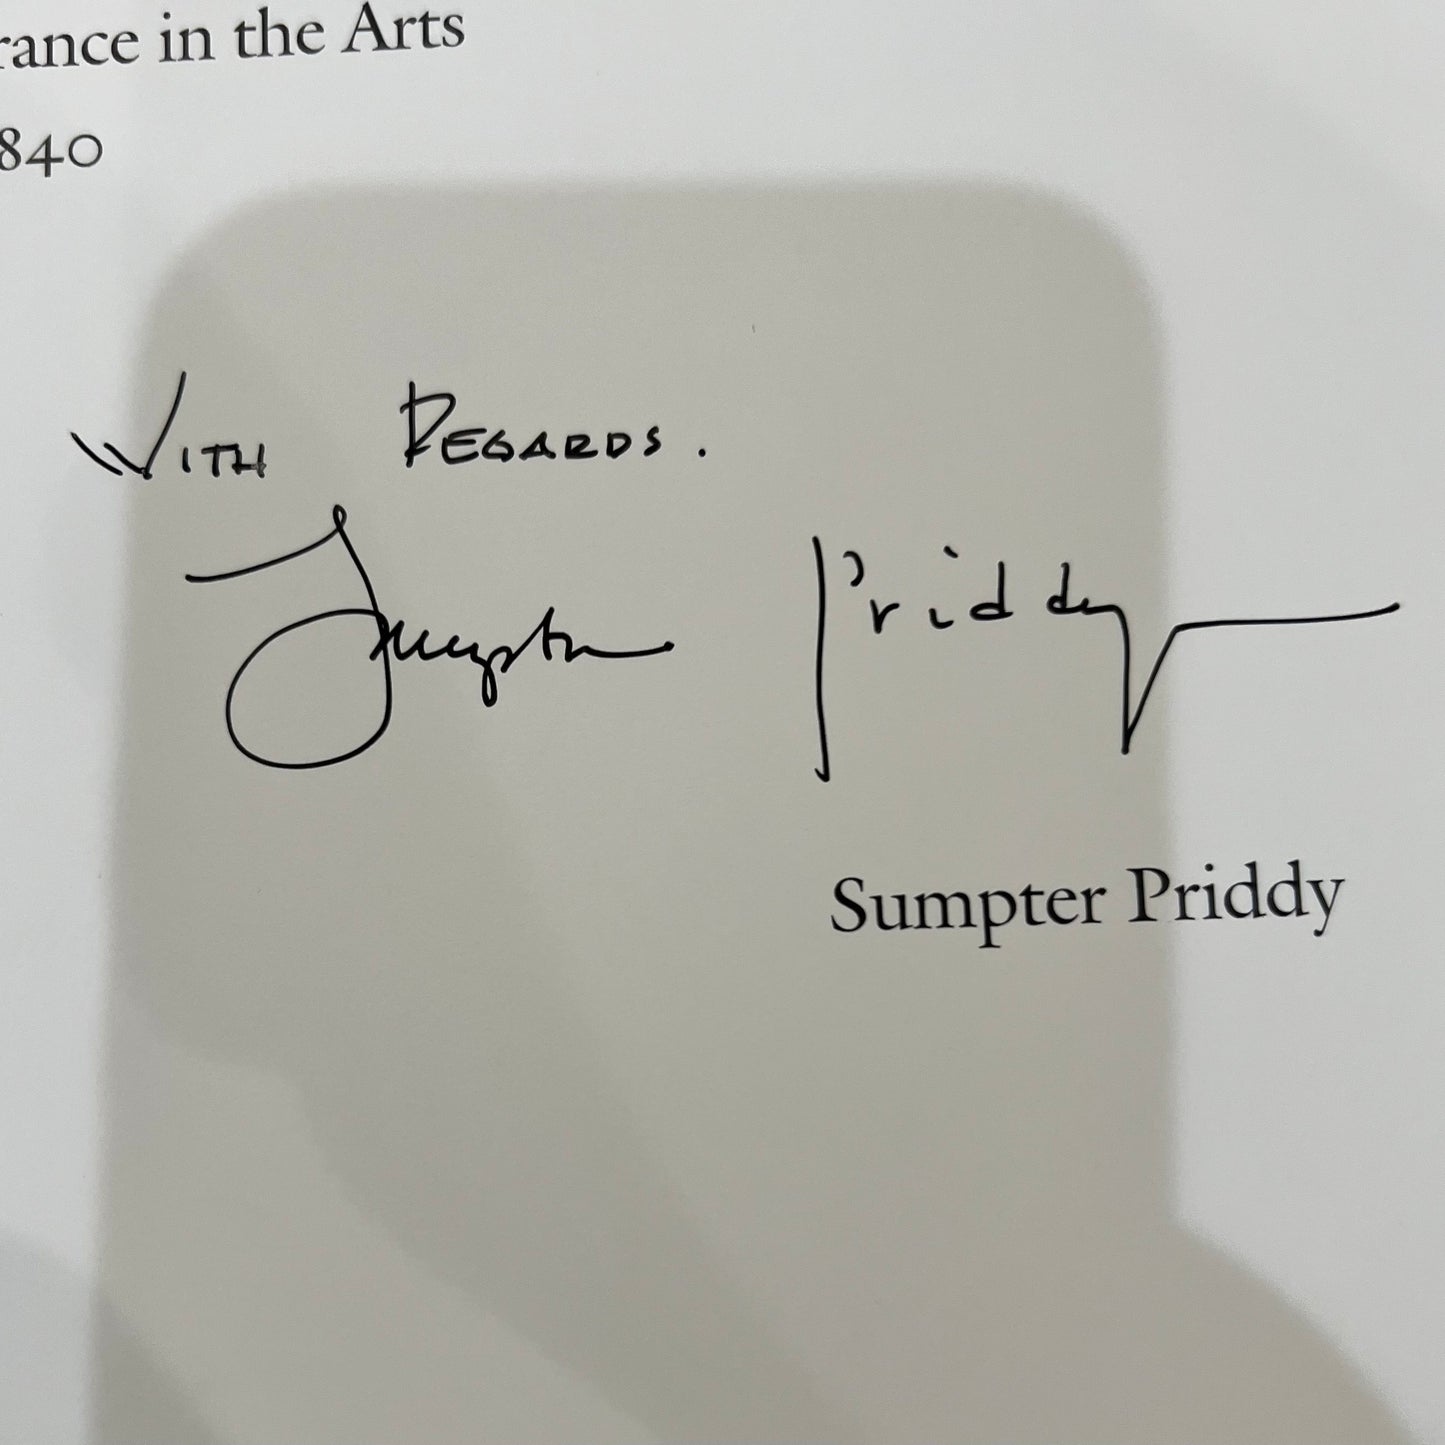 rance in the Arts
840
WITH REGARDS.
Sumpter Priddy
Sumpter Priddy